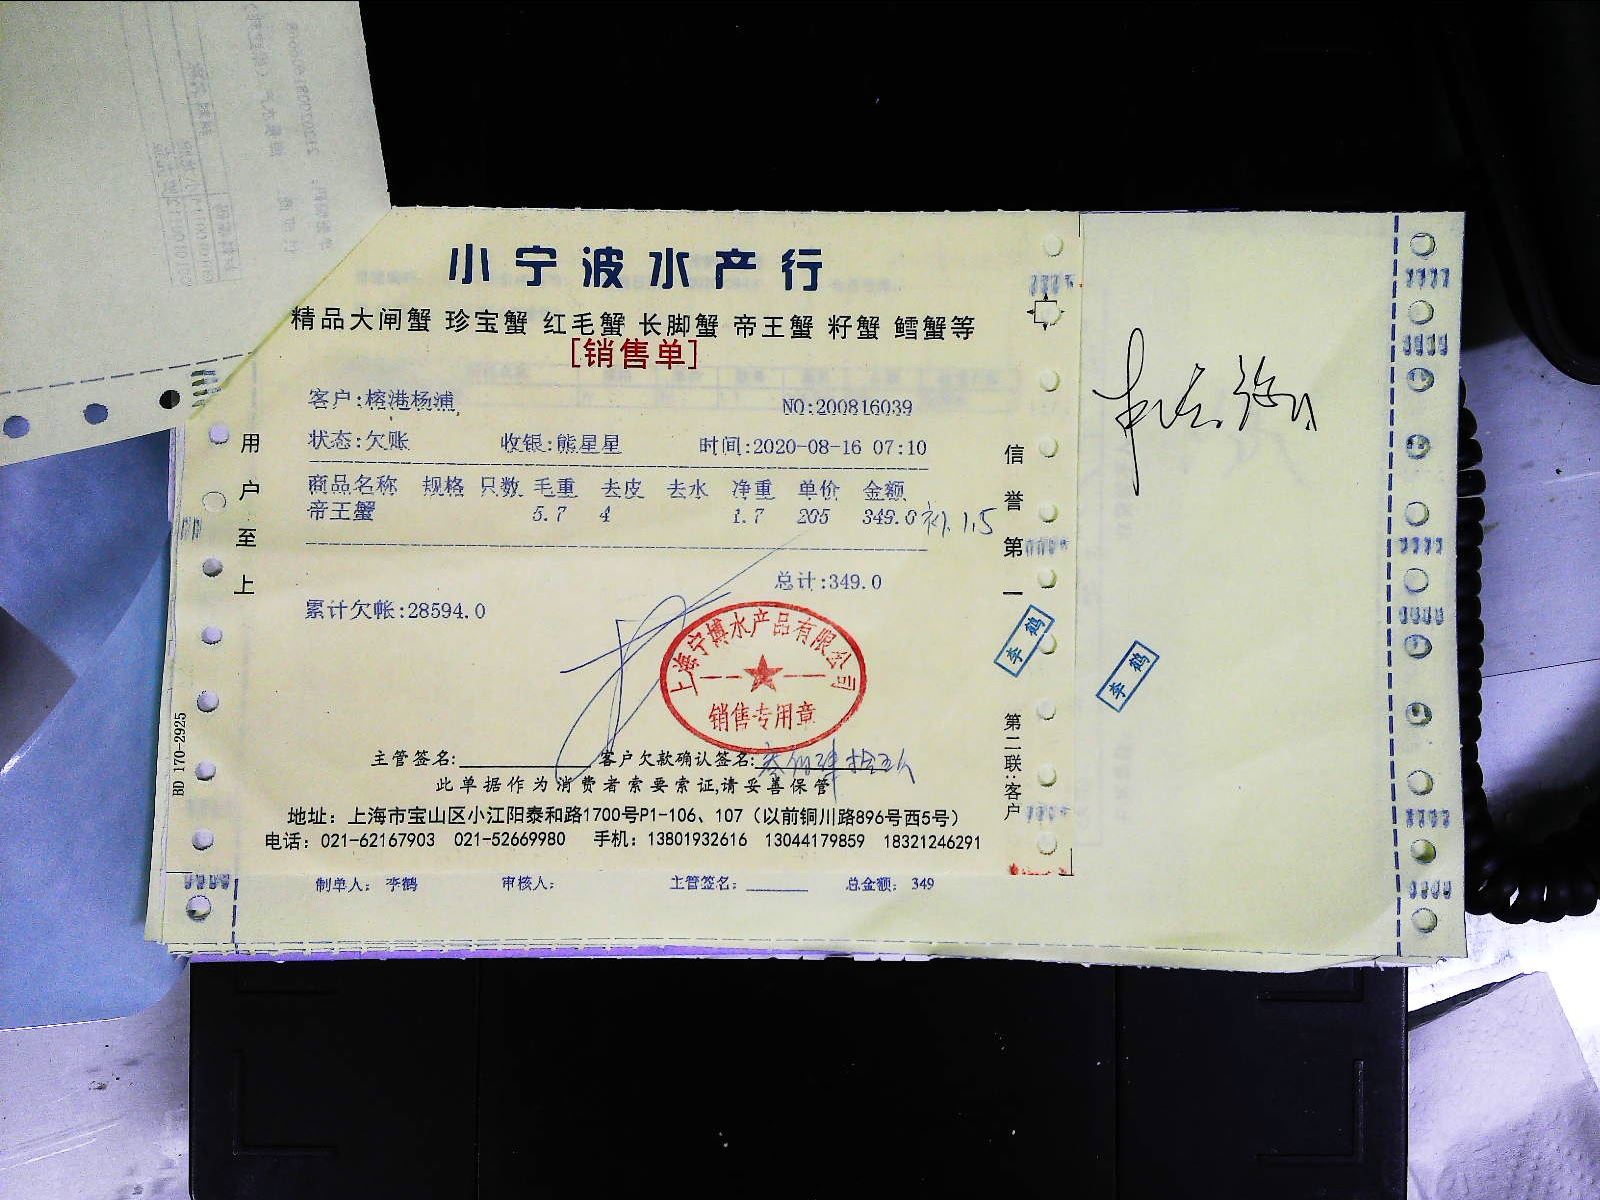 小宁波水产行
精品大闸蟹 珍宝蟹 红毛蟹 长脚蟹 帝王蟹 籽蟹 鳕蟹等
[销售单]
客户:榕港杨浦
NO:200816039
状态:欠账 收银:熊星星 时间:2020-08-16 07:10
商品名称 规格 只数 毛重 去皮 去水 净重 单价 金额
帝王蟹 5.7 4 1.7 205 349.0
1.5
总计:349.0
累计欠帐:28594.0
上海宁博水产品有限公司
销售专用章
主管签名: 客户欠款确认签名:
此单据作为消费者索要索证,请妥善保管
地址：上海市宝山区小江阳泰和路1700号P1-106、107（以前铜川路896号西5号）
电话：021-62167903 021-52669980 手机：13801932616 13044179859 18321246291
制单人：李鹤 审核人： 主管签名： 总金额：349
用户至上
信誉第一
第二联:客户
BD 170-2925
李鹤
李鹤